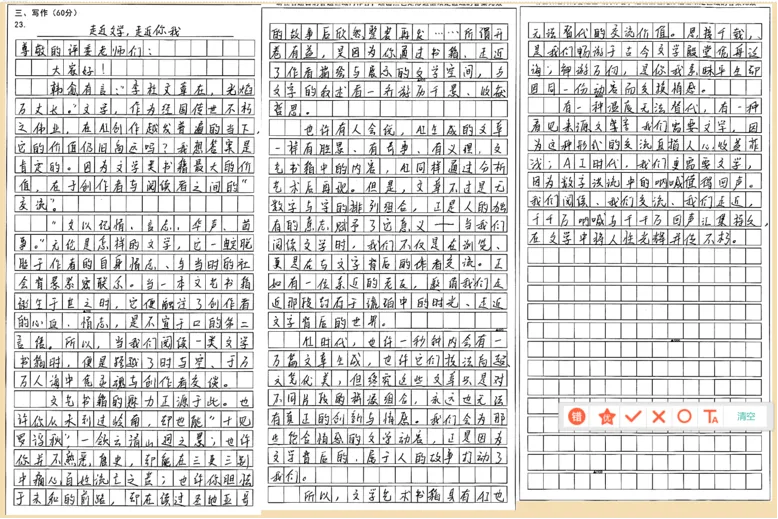 三、写作(60分)
23.
走近文学,走近你我
尊敬的评委老师们:
大家好!
韩愈有言:"李杜文章在,光焰
万丈长。"文学,作为经国传世不朽
之伟业,在AI创作越发普遍的当下,
它的价值仍旧闪远吗?我想答案是
肯定的。因为文学类书籍最大的价
值,在于创作者与阅读者之间的"
交流"。
"文以纪情、言志、
事。"无论是怎样的文学,它一般脱
胎于作者的自身情志、与当时的社
会背景紧密联系。当一本文艺书籍
诞生于其之时,它便融注了创作者
的心血、情志,是不宣于口的第二
言语。所以,当我们阅读一类文学
书籍时,便是跨越了时与空、于万
万人海中
文艺书籍的魅力正源于此。也
许你从未到过
也许
你并不熟悉历史,却能在三吏三别
中痛心百姓流亡之苦;也许你胆怯
于未知的前路,却在读过圣地亚哥
的故事后欣然整装再发……所谓开
卷有益,是因为你通过书籍、走近
了作者描绘与展示的文学空间,与
文字的叙述者一并游历千景、收获
哲思。
也许有人会说,AI生成的文章
一样有胜景、有奇事、有义理,文
艺书籍中的内容,AI同样通过分析
艺术后再现。但是,文章不过是无
数字与字的排列组合,正是人的独
有的意志赋予了它意义——当我们
阅读文学时,我们不仅是在浏览,
更是在与文字背后的作者交流。正
如有一位亲近的老友,邀请我们走
近那段封存于流珀中的时光、走近
文字背后的世界。
AI时代,也许一秒钟内会有一
万篇文章生成,也许它们技法
文艺优美,但终究这些文章只是对
不同片段的精读组合,永远也无法
有真正的创新与情感。我们会为那
些饱含情感的文字动容,正是因为
文字背后的、属于人的故事打动了
我们。
所以,文学艺术书籍具有AI也
无法替代的交流价值。
是我们畅游于古今文学殿堂
诲;神游万仞,是你我素昧平生却
因同一份动容而交换情感。
有一种温度无法替代,有一种
看见来源文学。我们需要文学,因
为这种形式的交流直指人心
浅;AI时代,我们更需要文学,
因为数字洪流中的呐喊值得回声。
我们阅读、我们交流、我们走近,
千千万呐喊与千千万回声汇集
在文学中将人性光辉并传不朽。
错
优
清空